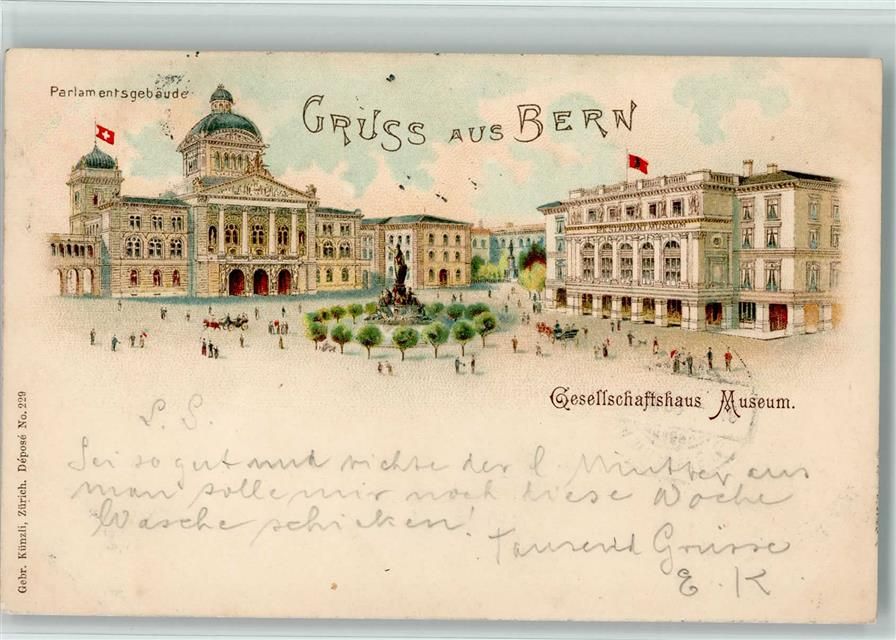 Parlamentsgebäude
GRUSS AUS BERN
RESTAURANT MUSEUM
Gesellschaftshaus Museum.
Gebr. Künzli, Zürich. Déposé No. 229
L. S.
Sei so gut und richte der l. Mutter aus
man solle mir noch diese Woche
Wäsche schicken!
Tausend Grüsse
E. K